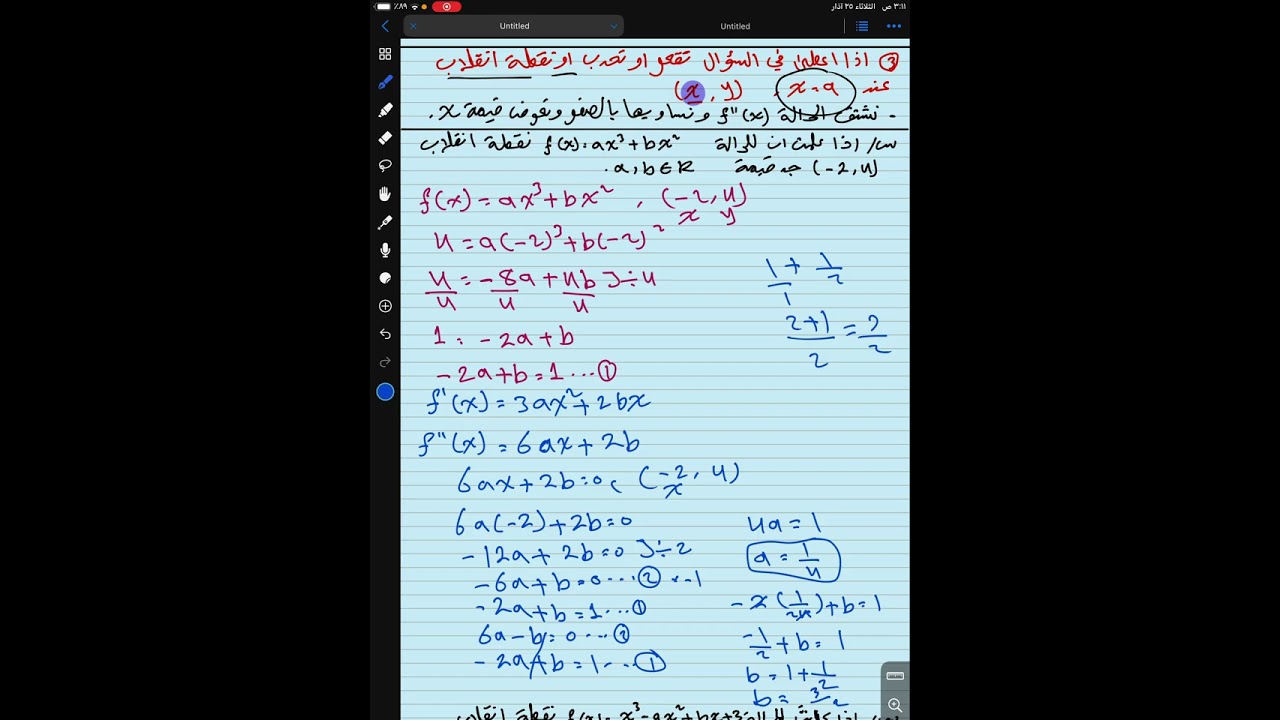 ٣:١١ ص الثلاثاء ٢٥ آذار
٪٨٩
Untitled
Untitled
③ اذا اعطى في السؤال تقعر او تحدب او نقطة انقلاب
عند x = a , (x , y)
- نشتق الدالة f"(x) و نساويها بالصفر ونعوض قيمة x .
س/ اذا علمت ان للدالة f(x) = ax³ + bx² نقطة انقلاب
(-2, 4) جد قيمة a, b ∈ R .
f(x) = ax³ + bx² , (-2, 4)
x y
4 = a(-2)³ + b(-2)²
4/4 = -8a/4 + 4b/4 ] ÷ 4
1 = -2a + b
-2a + b = 1 ... ①
f'(x) = 3ax² + 2bx
f"(x) = 6ax + 2b
6ax + 2b = 0 , (-2, 4)
x
6a(-2) + 2b = 0
-12a + 2b = 0 ] ÷ 2
-6a + b = 0 ... ② × -1
-2a + b = 1 ... ①
6a - b = 0 ... ②
-2a + b = 1 ... ①
1/1 + 1/2
2+1/2 = 3/2
4a = 1
a = 1/4
-2(1/4) + b = 1
-1/2 + b = 1
b = 1 + 1/2
b = 3/2
f(x) = x³ - ax² + bx + 3 نقطة انقلاب